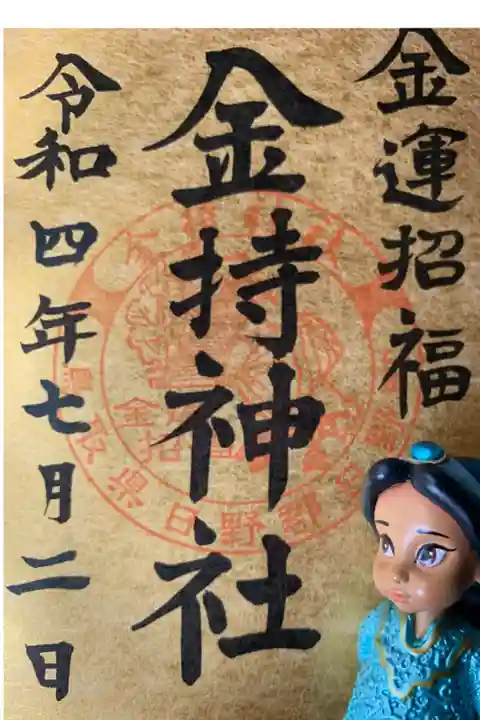 金運招福
金持神社
令和四年七月二日